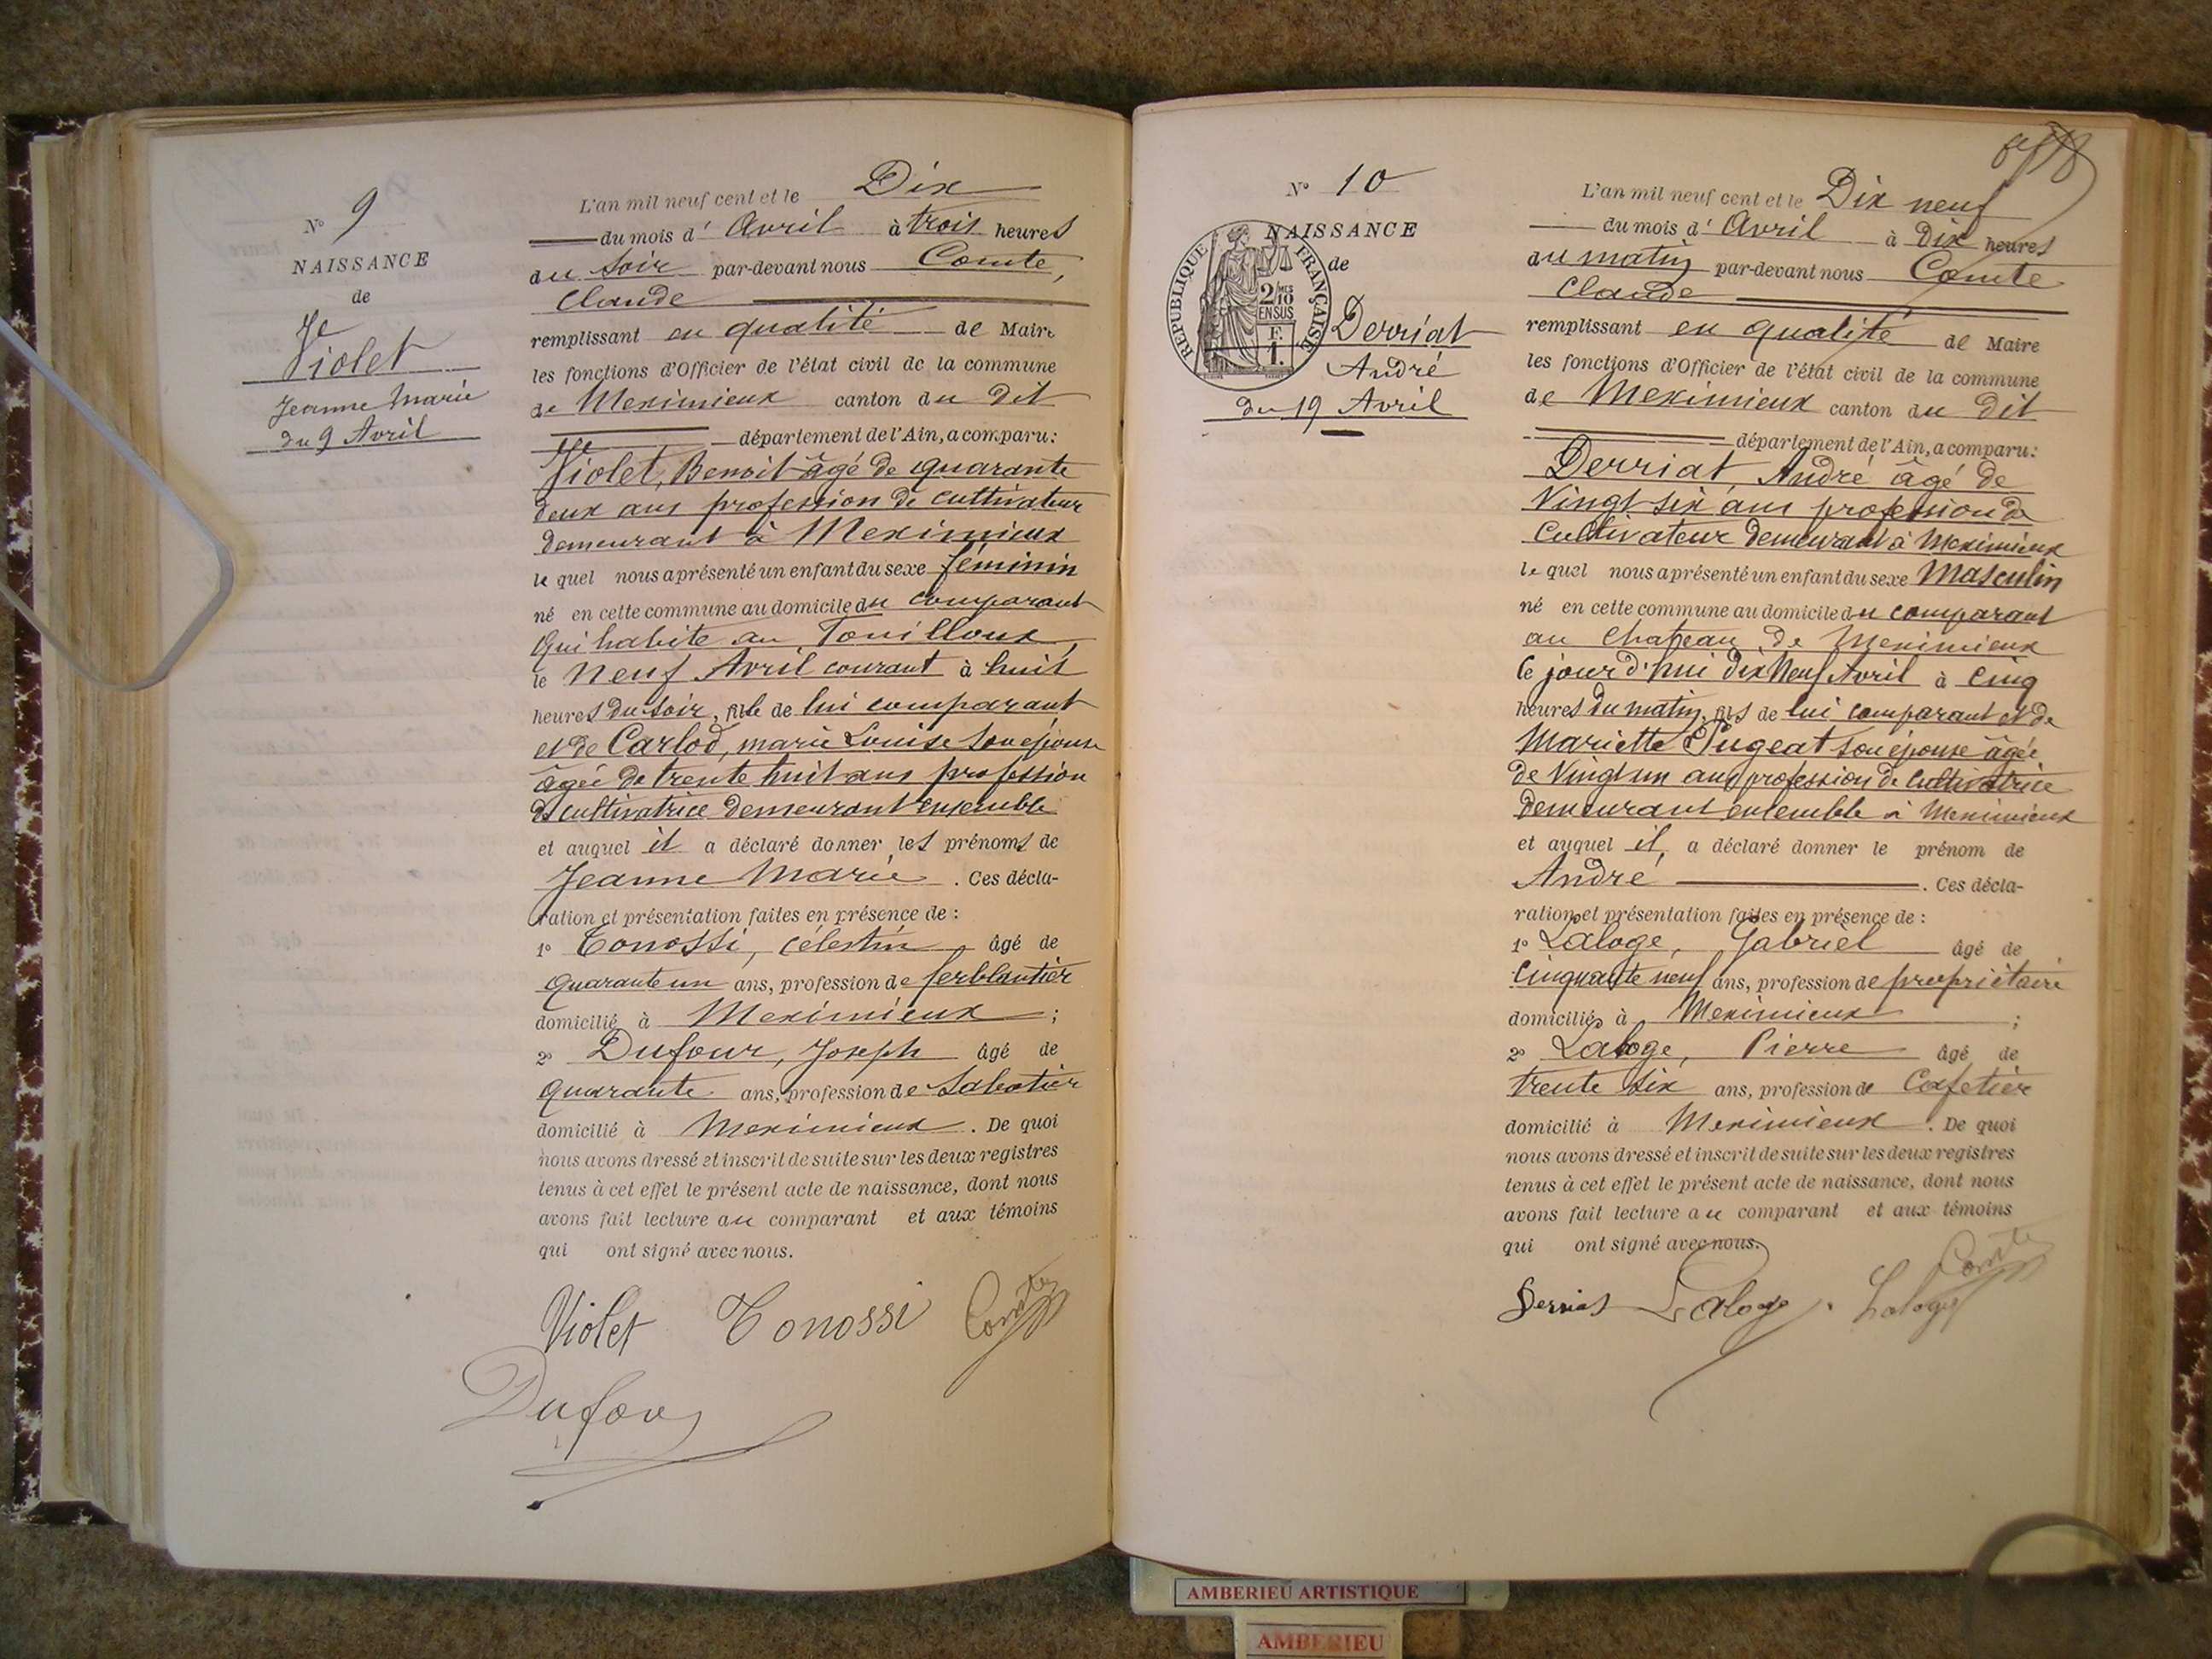 N° 9
NAISSANCE
de
Violet
Jeanne Marie
du 9 Avril
L'an mil neuf cent et le Dix
du mois d' Avril à trois heures
du soir par-devant nous Comte,
Claude
remplissant en qualité de Maire
les fonctions d'Officier de l'état civil de la commune
de Meximieux canton du dit
département de l'Ain, a comparu:
Violet, Benoit âgé de quarante
deux ans profession de cultivateur
demeurant à Meximieux
le quel nous a présenté un enfant du sexe féminin
né en cette commune au domicile du comparant
qui habite au Touilloux,
le neuf Avril courant à huit
heures du soir, fille de lui comparant
et de Carlod, marie Louise son épouse
âgée de trente huit ans profession
de cultivatrice demeurant ensemble
et auquel il a déclaré donner les prénoms de
Jeanne Marie . Ces décla-
ration et présentation faites en présence de :
1° Tonossi, Célestin âgé de
quarante un ans, profession de ferblantier
domicilié à Meximieux ;
2° Dufour, Joseph âgé de
quarante ans, profession de Sabotier
domicilié à Meximieux . De quoi
nous avons dressé et inscrit de suite sur les deux registres
tenus à cet effet le présent acte de naissance, dont nous
avons fait lecture au comparant et aux témoins
qui ont signé avec nous.
Violet Tonossi Comte
Dufour
N° 10
NAISSANCE
de
REPUBLIQUE FRANÇAISE
2/10 MES
EN SUS
F.
1.
Derriat
André
du 19 Avril
L'an mil neuf cent et le Dix neuf
du mois d' Avril à Dix heures
du matin par-devant nous Comte
Claude
remplissant en qualité de Maire
les fonctions d'Officier de l'état civil de la commune
de Meximieux canton du dit
département de l'Ain, a comparu:
Derriat, André âgé de
Vingt six ans profession de
Cultivateur demeurant à Meximieux
le quel nous a présenté un enfant du sexe Masculin
né en cette commune au domicile du comparant
au Chateau de Meximieux
le jour d'hui dix neuf Avril à cinq
heures du matin, fils de lui comparant et de
Mariette Pugeat son épouse âgée
de Vingt un ans profession de Cultivatrice
demeurant ensemble à Meximieux
et auquel il a déclaré donner le prénom de
André . Ces décla-
ration et présentation faites en présence de :
1° Laloge, Gabriel âgé de
Cinquante neuf ans, profession de propriétaire
domicilié à Meximieux ;
2° Laloge, Pierre âgé de
trente six ans, profession de Cafetier
domicilié à Meximieux . De quoi
nous avons dressé et inscrit de suite sur les deux registres
tenus à cet effet le présent acte de naissance, dont nous
avons fait lecture au comparant et aux témoins
qui ont signé avec nous.
Comte
Derriat Laloge Laloge
AMBERIEU ARTISTIQUE
AMBERIEU